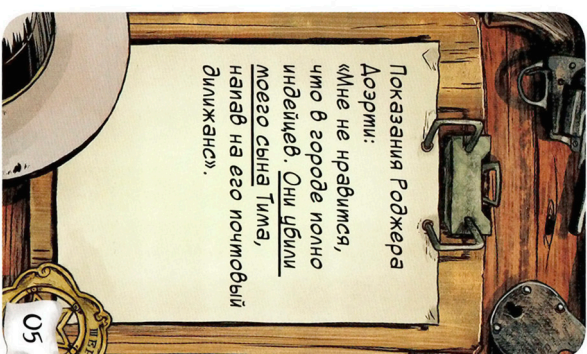 Показания Роджера
Доэрти:
«Мне не нравится,
что в городе полно
индейцев. Они убили
моего сына Тима,
напав на его почтовый
дилижанс».
05